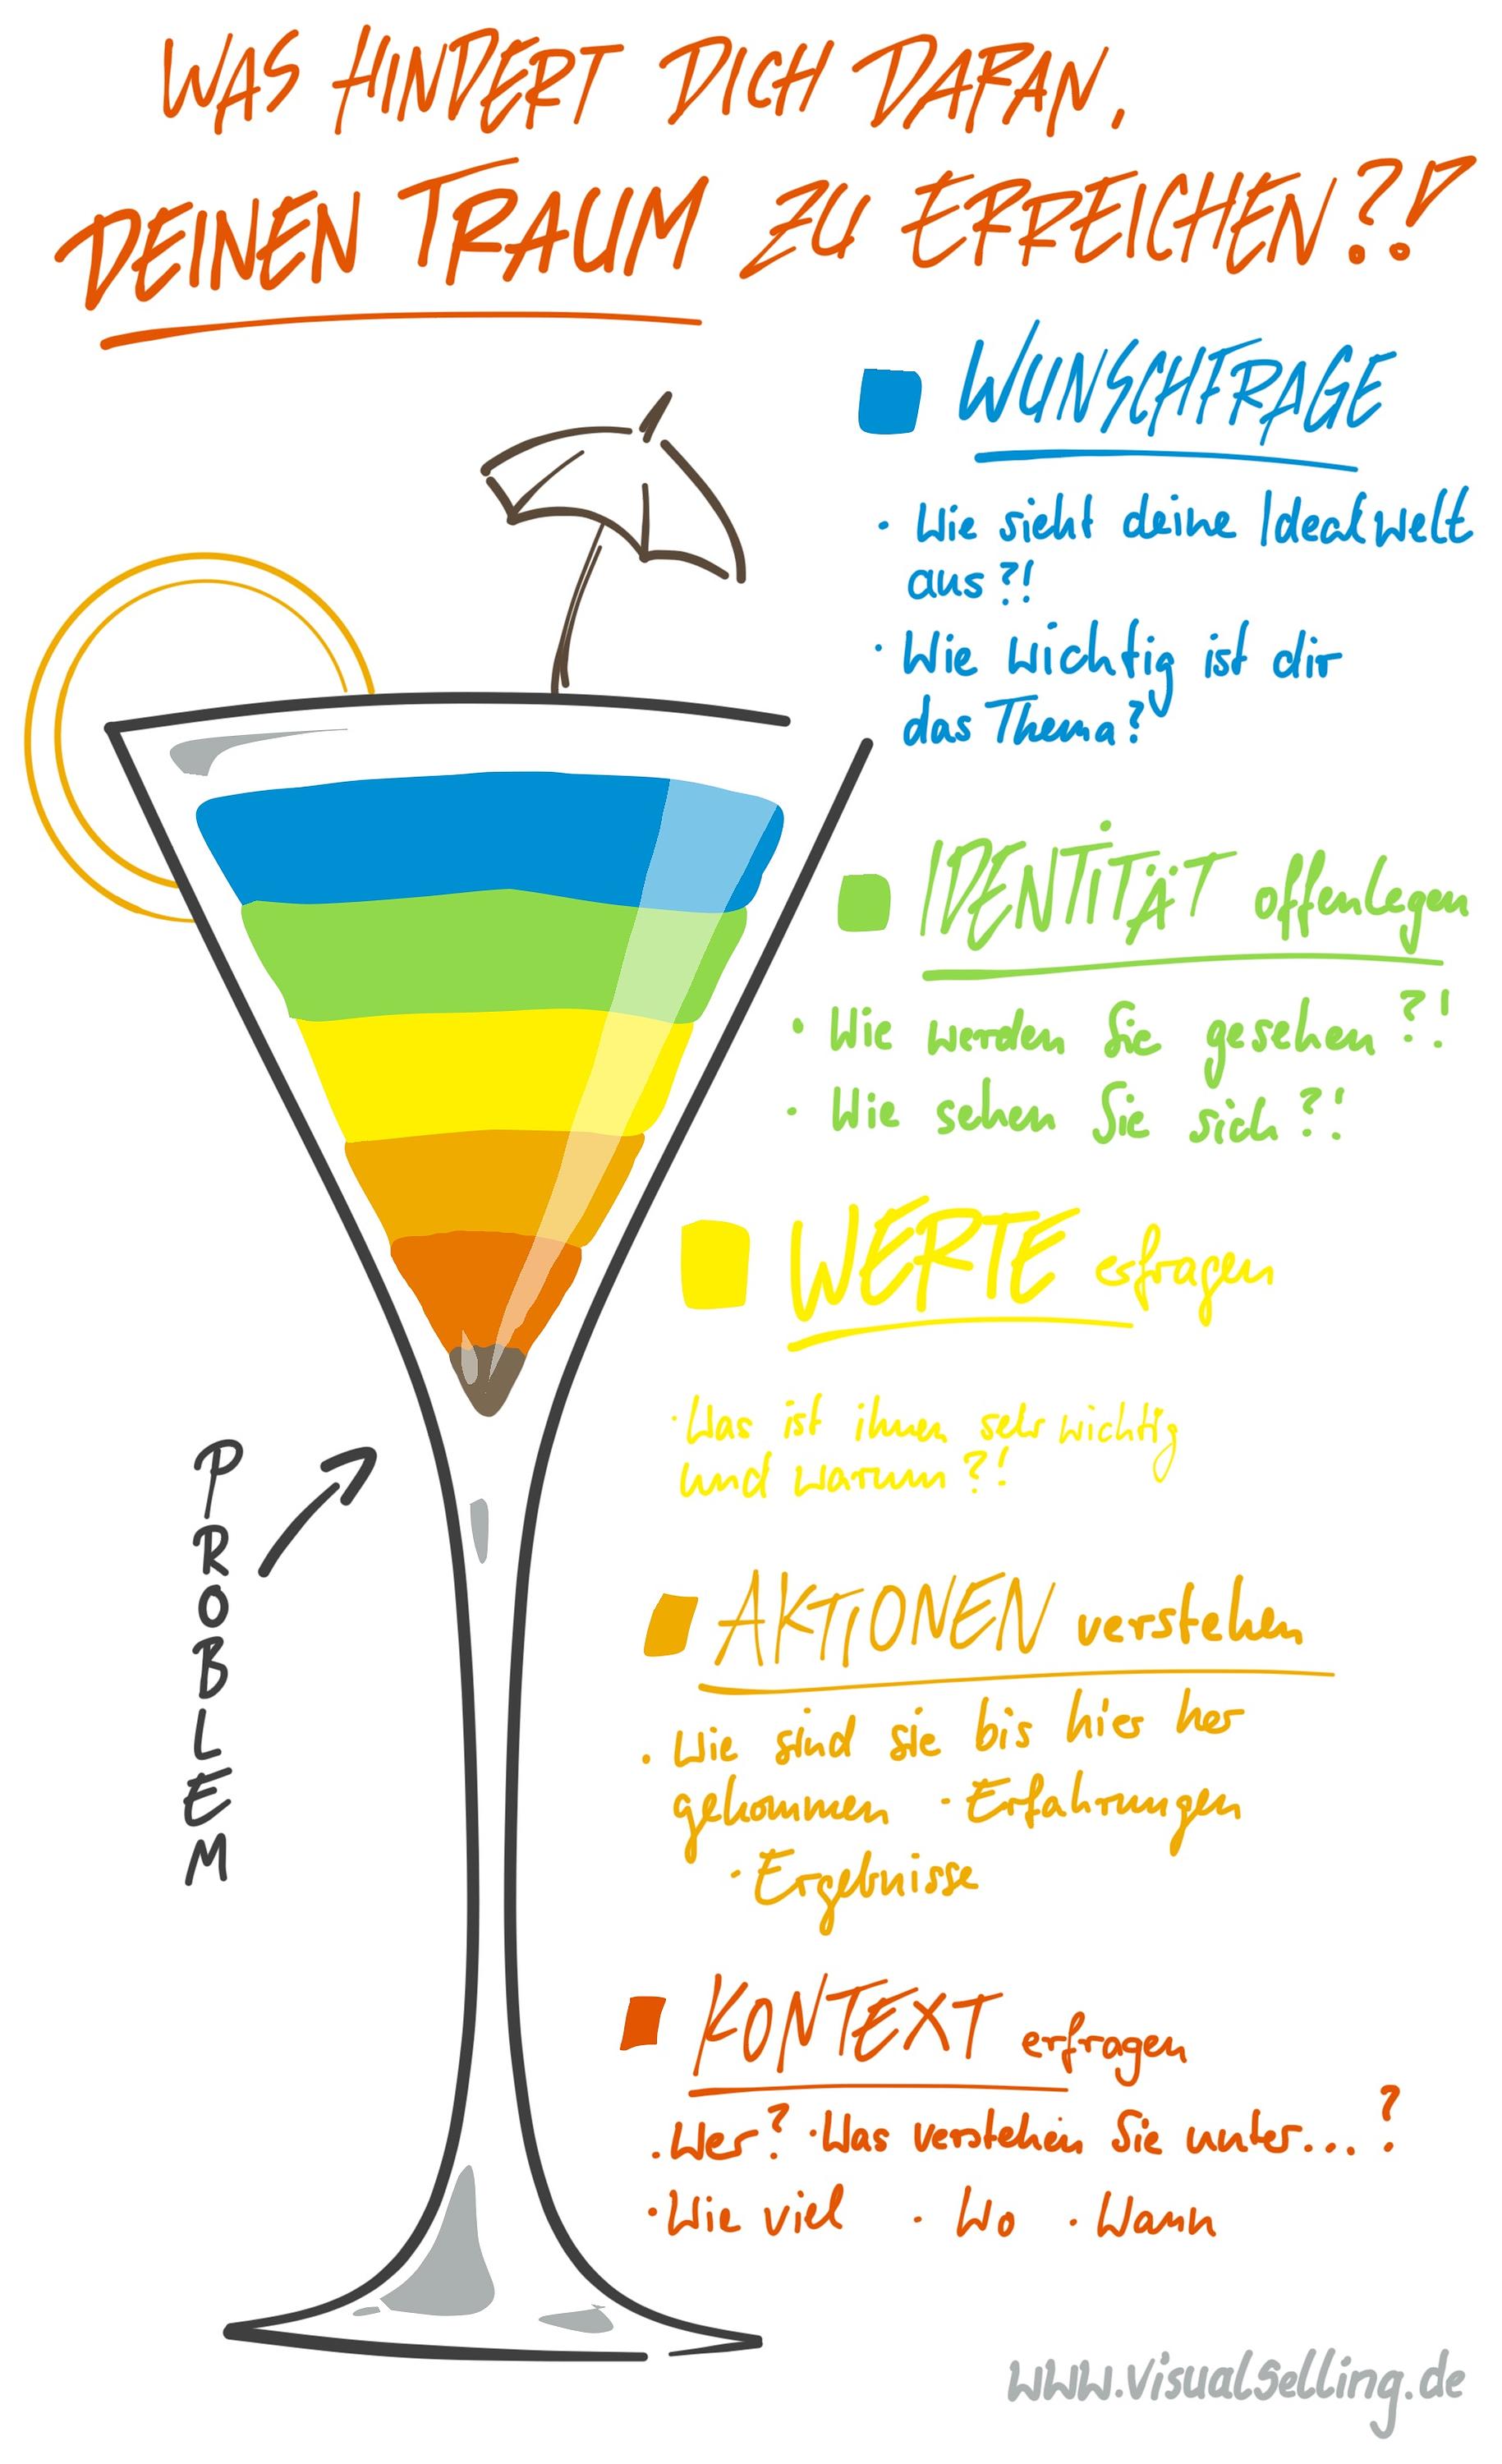 WAS HINDERT DICH DARAN,
DEINEN TRAUM ZU ERREICHEN?!
WUNSCHFRAGE
· Wie sieht deine Idealwelt
aus?!
· Wie wichtig ist dir
das Thema?
IDENTITÄT offenlegen
· Wie werden Sie gesehen?!
· Wie sehen Sie sich?!
WERTE erfragen
· Was ist ihnen sehr wichtig
und warum?!
AKTIONEN verstehen
· Wie sind sie bis hier her
gekommen · Erfahrungen
· Ergebnisse
PROBLEM
KONTEXT erfragen
· Wer? · Was verstehen Sie unter...?
· Wie viel · Wo · Wann
www.visualselling.de